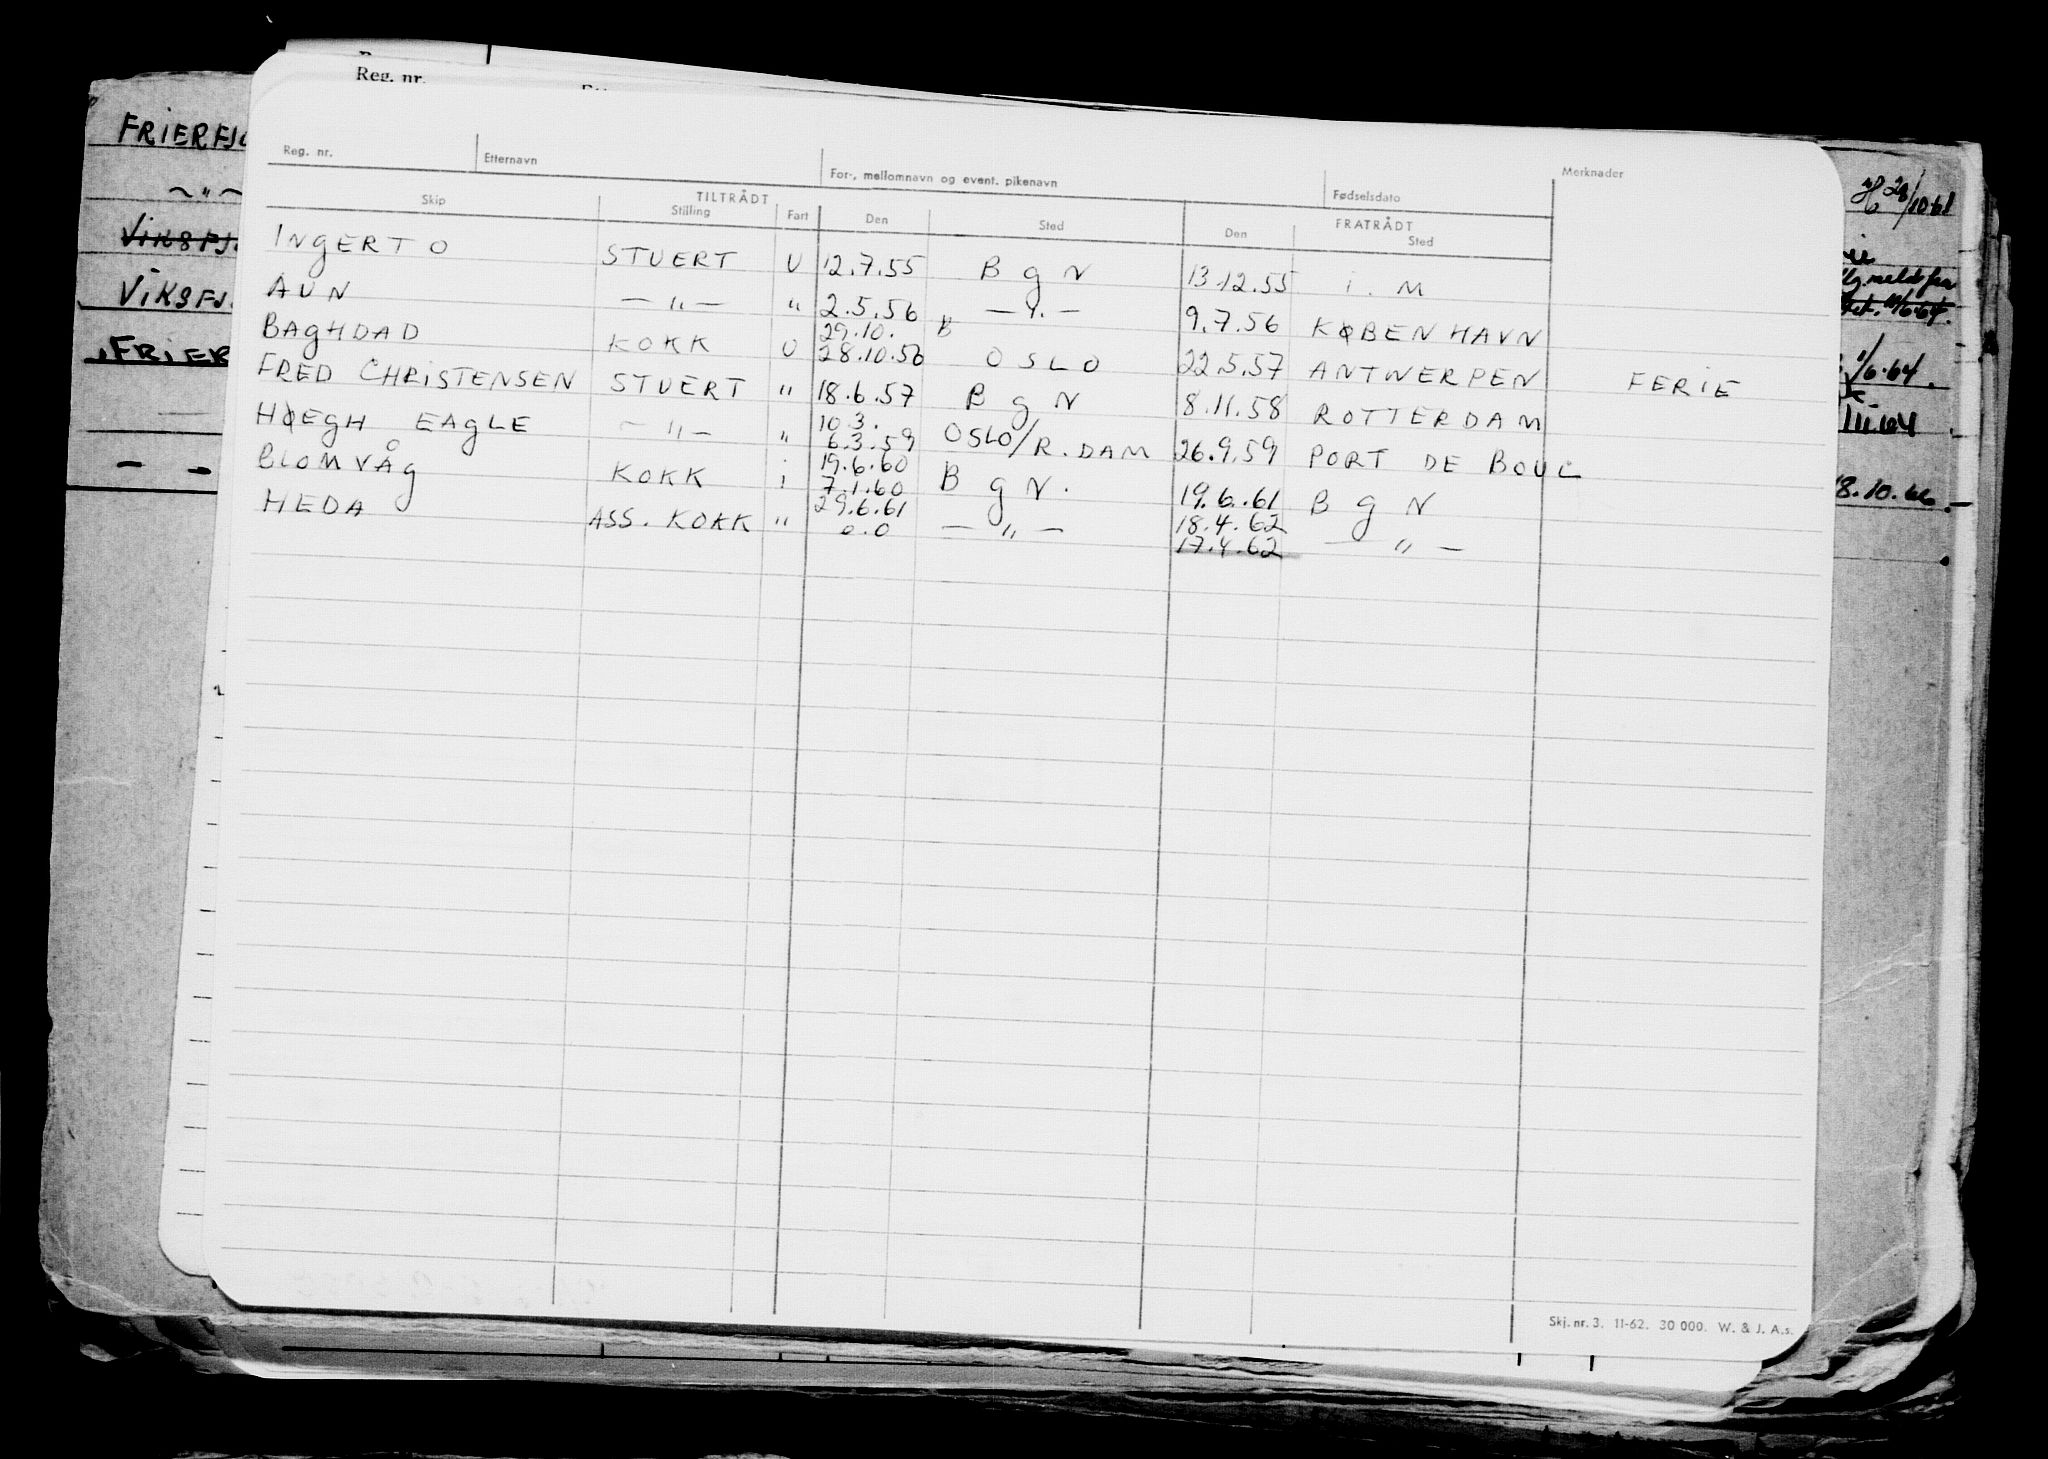 Reg. nr.
FRIERFJO
— " —
VIKSFJ.
VIKSFJ.
FRIER
— —
Reg. nr. Etternavn For-, mellomnavn og event. pikenavn Fødselsdato Merknader
TILTRÅDT FRATRÅDT
Skip Stilling Fart Den Sted Den Sted
INGERTO STUERT U 12.7.55 BgN 13.12.55 i. M
AUN — " — " 2.5.56 — " — 9.7.56 KØBENHAVN
29.10.
BAGHDAD KOKK U 28.10.56 OSLO 22.5.57 ANTWERPEN FERIE
FRED CHRISTENSEN STUERT " 18.6.57 BgN 8.11.58 ROTTERDAM
10.3.
HØEGH EAGLE — " — " 6.3.59 OSLO/R.DAM 26.9.59 PORT DE BOUC
19.6.60
BLOMVÅG KOKK i 7.1.60 BgN. 19.6.61 BgN
29.6.61 18.4.62
HEDA ASS. KOKK " 0.0 — " — 17.4.62 — " —
28/10-61
meld fra
1/6-64.
18.10.66
Skj. nr. 3. 11-62. 30 000. W. & J. A.s.